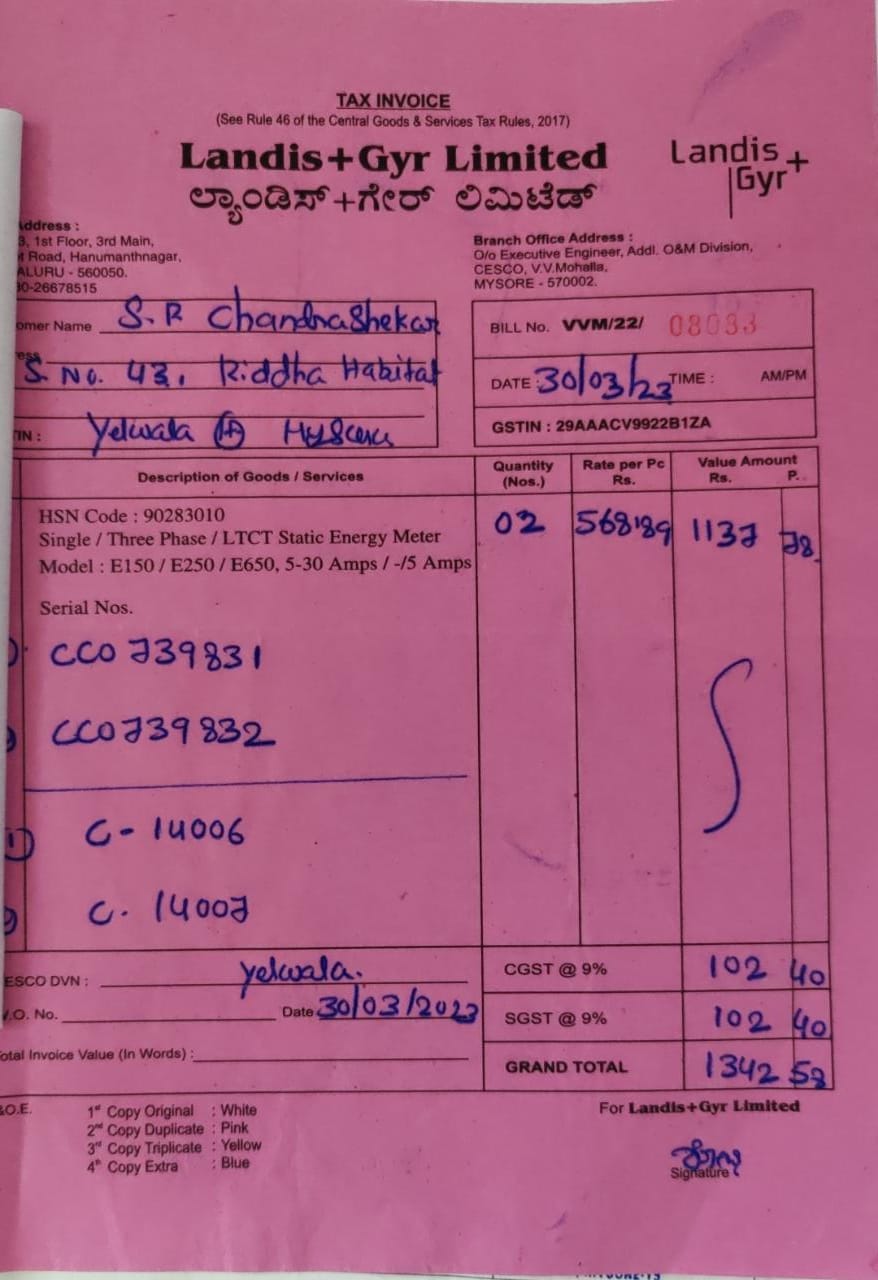 TAX INVOICE
(See Rule 46 of the Central Goods & Services Tax Rules, 2017)
Landis+Gyr Limited
ಲ್ಯಾಂಡಿಸ್+ಗೇರ್ ಲಿಮಿಟೆಡ್
Landis
Gyr+
Address :
1st Floor, 3rd Main,
Road, Hanumanthnagar,
ALURU - 560050.
0-26678515
Branch Office Address :
O/o Executive Engineer, Addl. O&M Division,
CESCO, V.V.Mohalla,
MYSORE - 570002.
omer Name S.R Chandrashekar
ess S. No. 43, Riddha Habitat
TIN : Yelwala (H)
BILL No. VVM/22/ 08033
DATE : 30/03/23 TIME : AM/PM
GSTIN : 29AAACV9922B1ZA
Description of Goods / Services Quantity (Nos.) Rate per Pc Rs. Value Amount Rs. P.
HSN Code : 90283010
Single / Three Phase / LTCT Static Energy Meter 02 568.89 1137 78
Model : E150 / E250 / E650, 5-30 Amps / -/5 Amps
Serial Nos.
CC0739831
CC0739832
1) C- 14006
C- 14007
ESCO DVN : Yelwala.
.O. No. Date 30/03/2023
otal Invoice Value (In Words) :
CGST @ 9% 102 40
SGST @ 9% 102 40
GRAND TOTAL 1342 58
&O.E.
1st Copy Original : White
2nd Copy Duplicate : Pink
3rd Copy Triplicate : Yellow
4th Copy Extra : Blue
For Landis+Gyr Limited
Signature